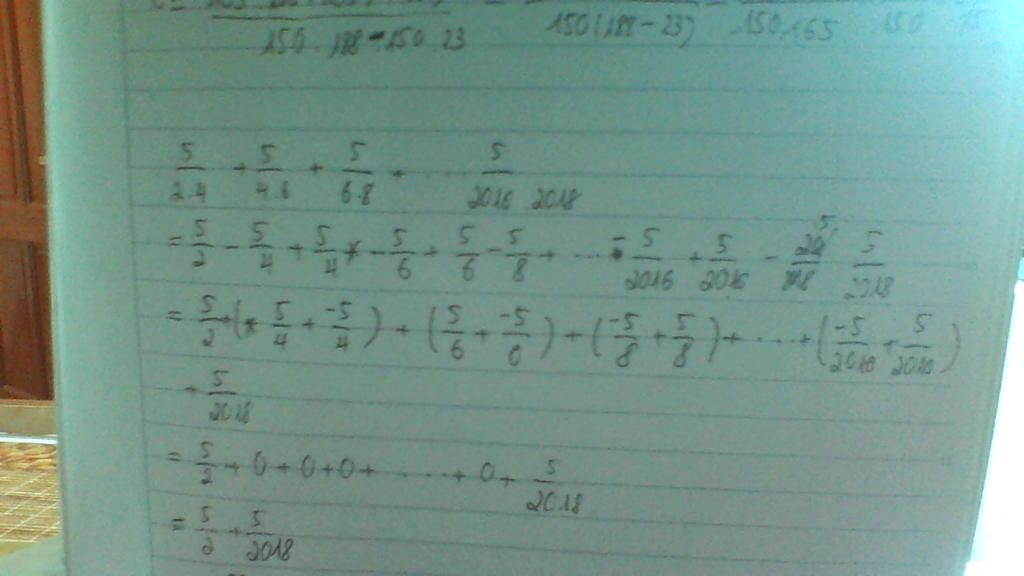 150.188-150.23 150(188-23) 150.165 150
5/2.4 + 5/4.6 + 5/6.8 + ... 5/2016.2018
= 5/2 - 5/4 + 5/4 - 5/6 + 5/6 - 5/8 + ... - 5/2016 + 5/2016 - 5/2018
= 5/2 + (5/4 + -5/4) + (5/6 + -5/6) + (-5/8 + 5/8) + ... + (-5/2016 + 5/2016)
+ 5/2018
= 5/2 + 0 + 0 + 0 + ... + 0 + 5/2018
= 5/2 + 5/2018